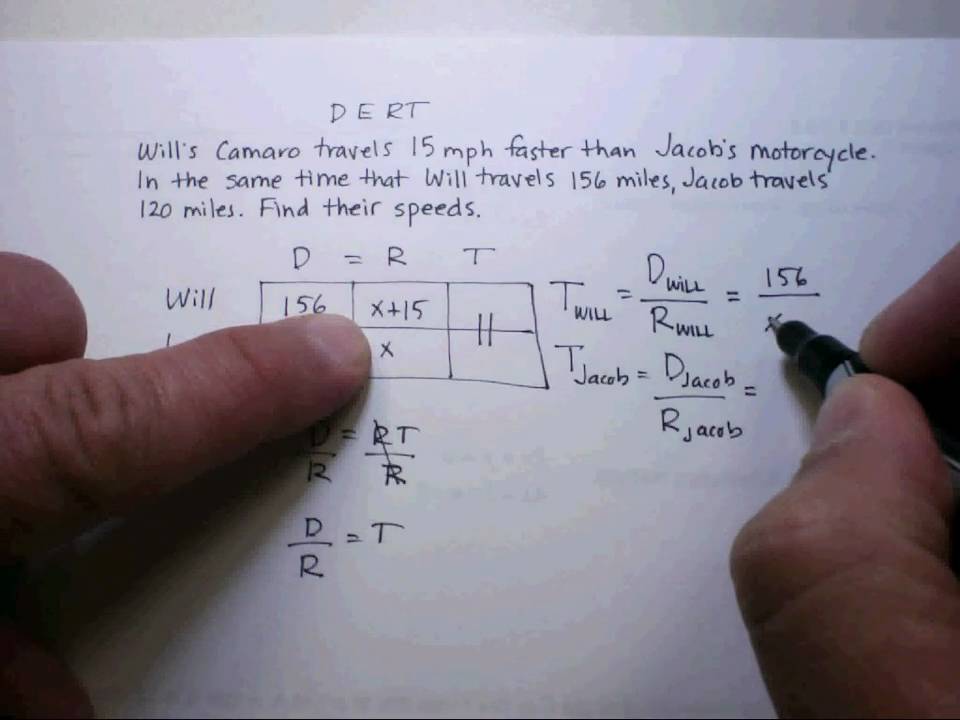 D E R T
Will's Camaro travels 15 mph faster than Jacob's motorcycle.
In the same time that Will travels 156 miles, Jacob travels
120 miles. Find their speeds.
D = R T
Will 156 x+15 ||
x
T WILL = D WILL / R WILL = 156 / x
T Jacob = D Jacob / R Jacob =
D / R = RT / R
D / R = T